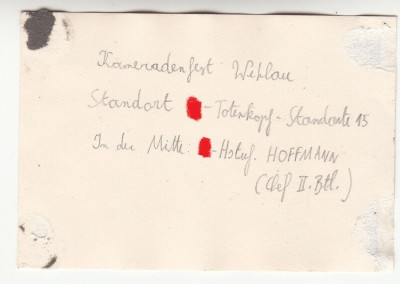 Kameradenfest Wehlau
Standort -Totenkopf-Standarte 15
In der Mitte: -Hstuf. HOFFMANN
(Chef II.Btl.)